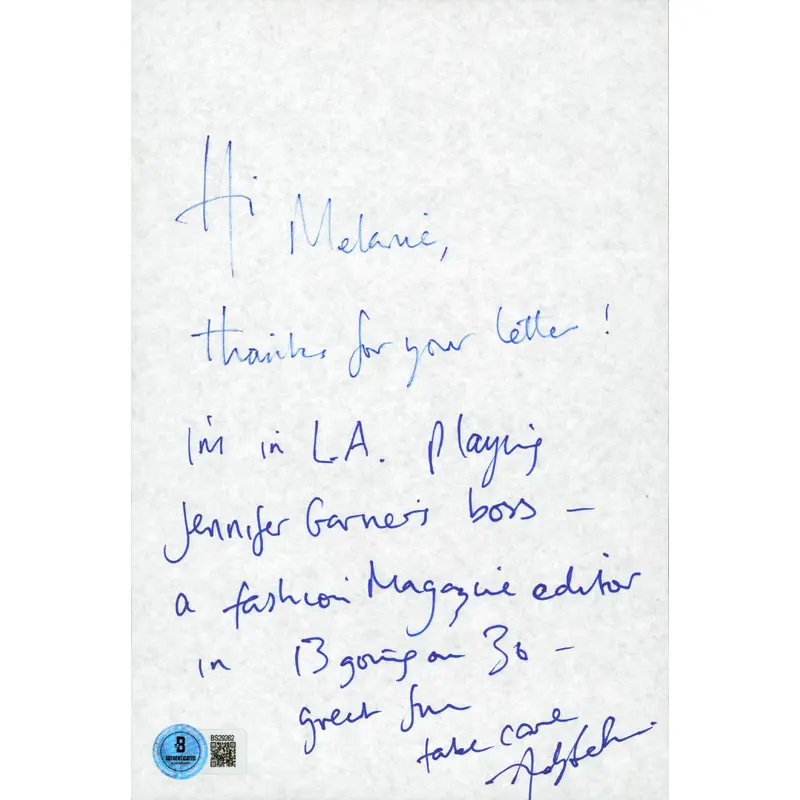 Hi Melanie,
thanks for your letter!
I'm in L.A. playing
Jennifer Garner's boss –
a fashion Magazine editor
in 13 going on 30 –
great fun
take care
B
AUTHENTICATED
BS29362